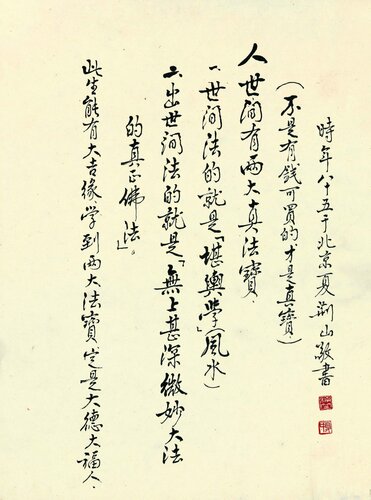 時年八十五于北京夏荊山敬書
(不是有錢可買的才是真寶)
人世間有兩大真法寶.
一.世間法的就是「堪輿學」(風水)
二.出世間法的就是「無上甚深微妙大法
的真正佛法」。
此生能有大吉緣.學到兩大法寶.定是大德大福人.